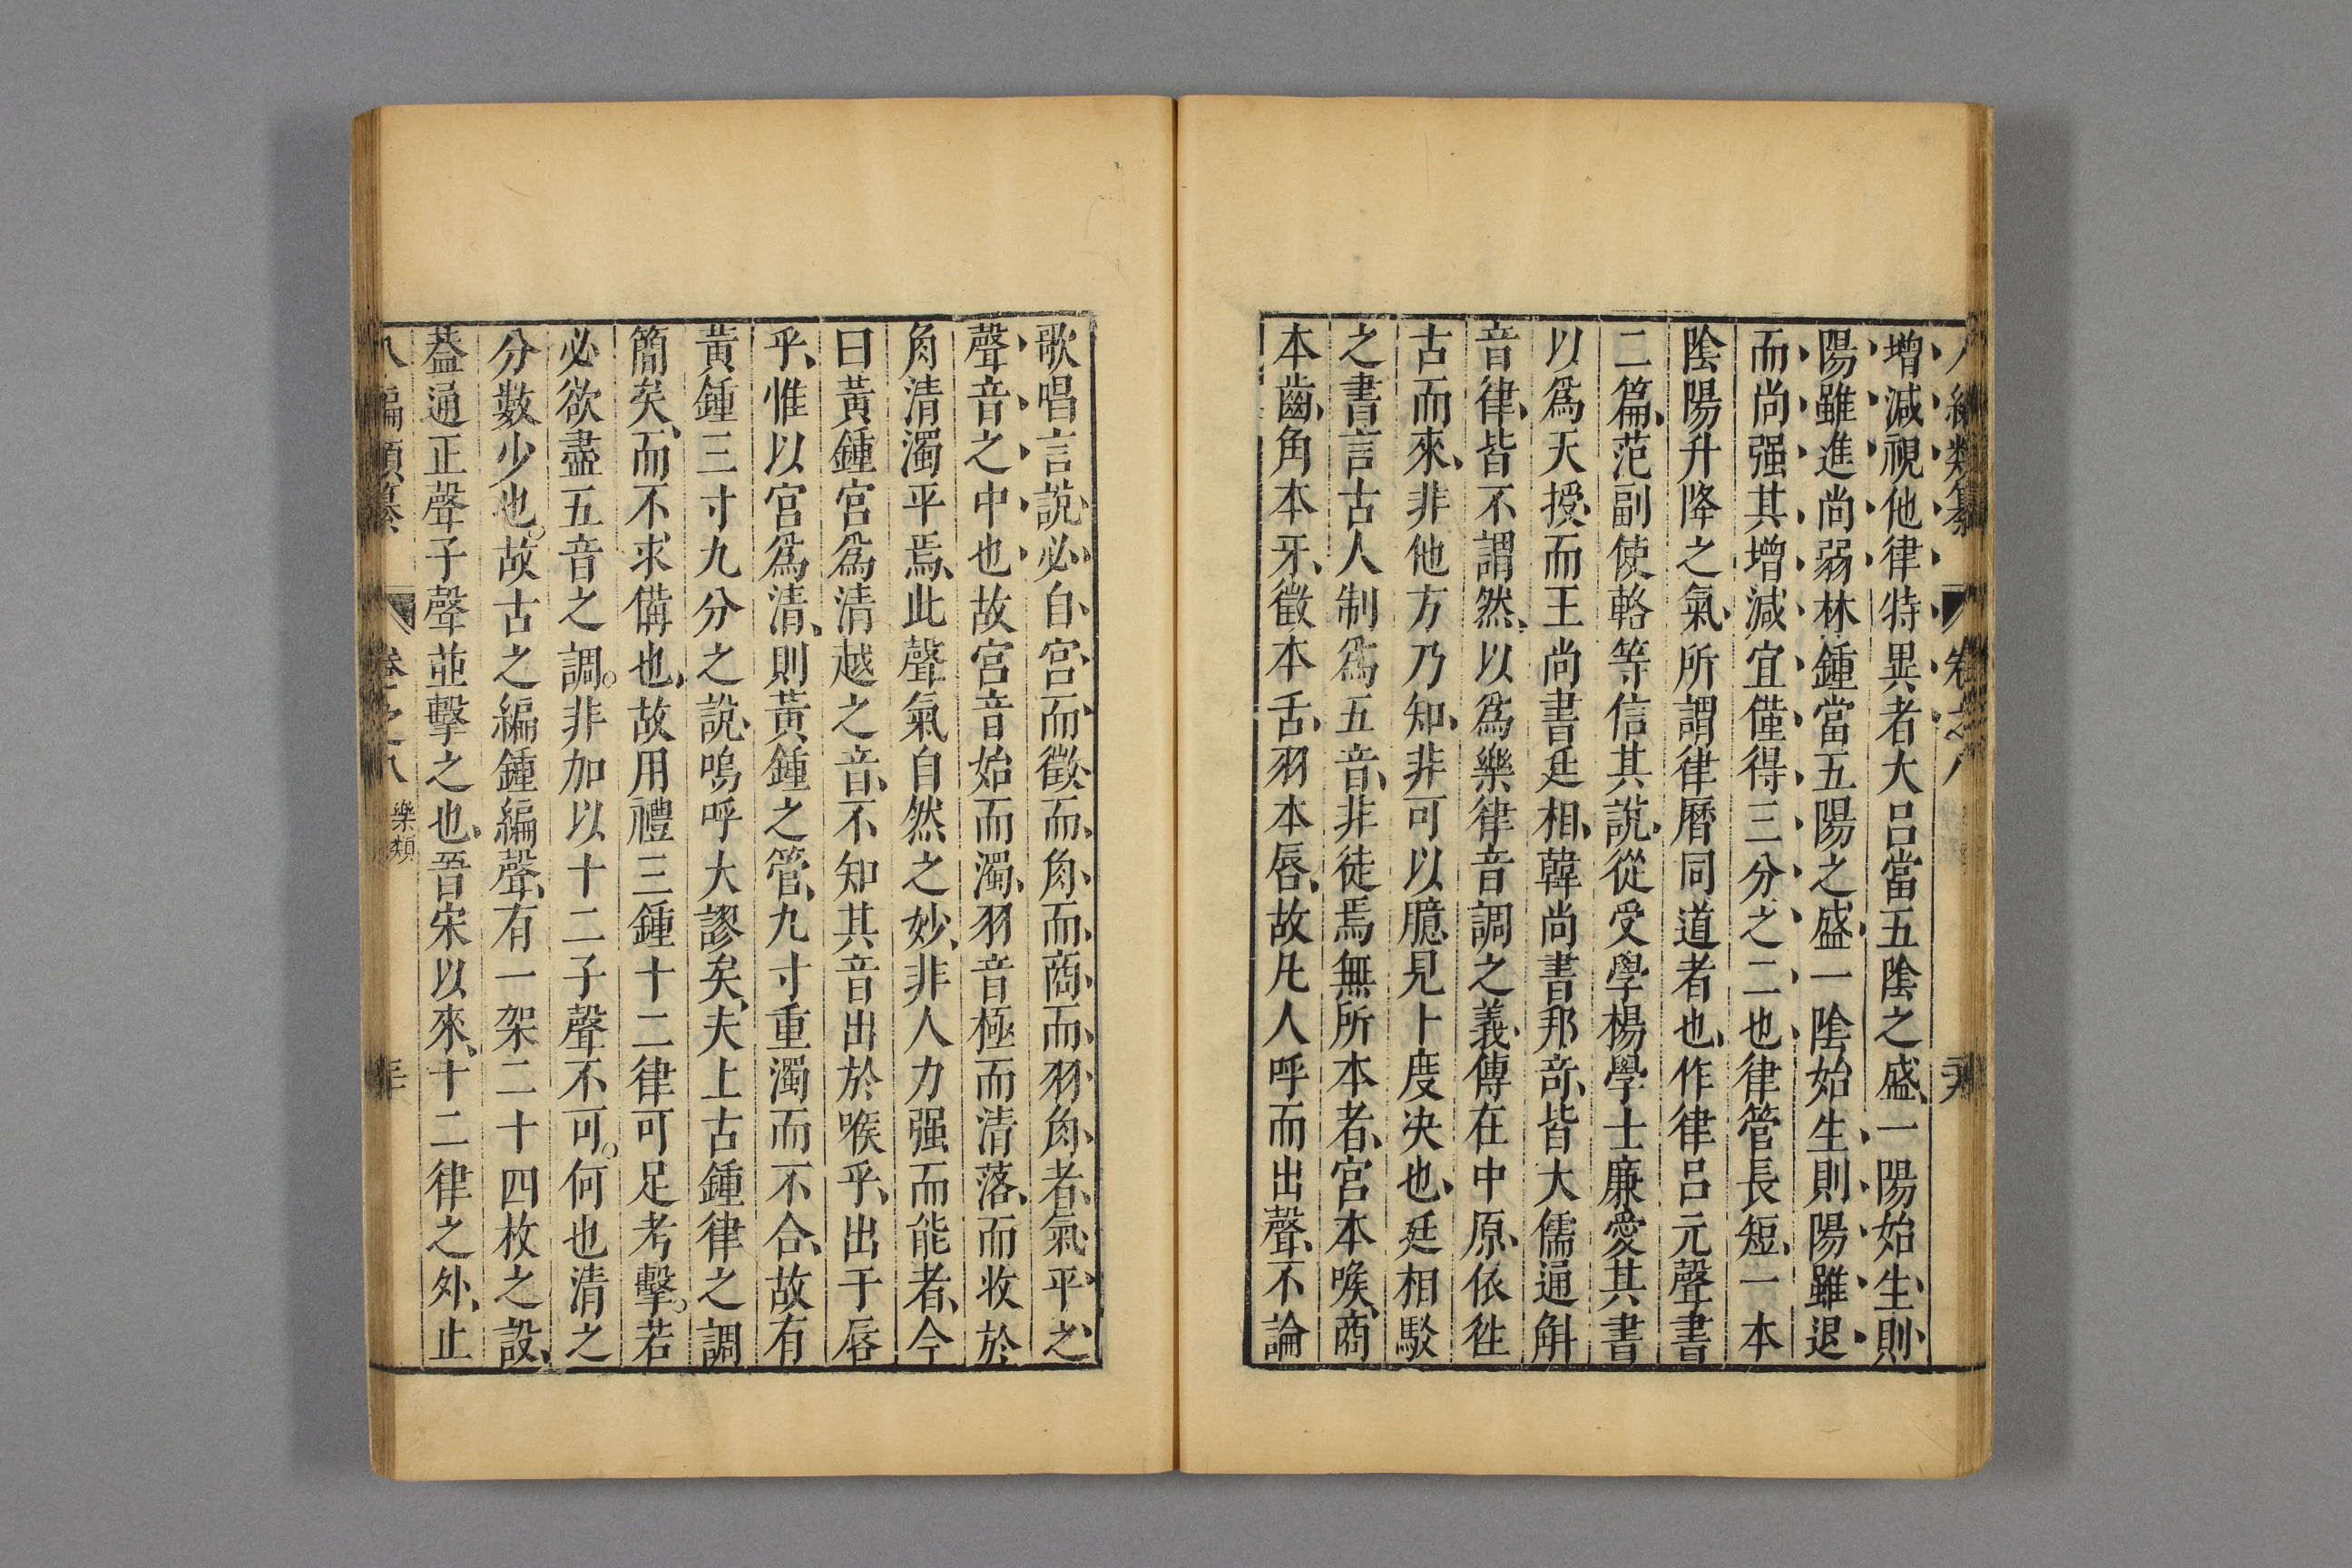 八編類纂 卷之八
增減視他律特異者大呂當五陰之盛、一陽始生則
陽雖進尚弱林鍾當五陽之盛一陰始生則陽雖退
而尚强其增減宜僅得三分之二也律管長短、一本
陰陽升降之氣所謂律曆同道者也、作律呂元聲書
二篇、范副使輅等信其說、從受學楊學士廉愛其書
以爲天授、而王尚書廷相、韓尚書邦竒、皆大儒通觧
音律、皆不謂然、以爲樂律音調之義、傳在中原、依徃
古而來、非他方乃知、非可以臆見卜度决也、廷相駁
之書言古人制爲五音、非徒焉無所本者、宫本喉、商
本齒、角本牙、徵本舌、羽本唇、故凡人呼而出聲、不論
歌唱言說、必自宫而徵而角而商而羽角者氣平之
聲音之中也故宫音始而濁、羽音極而清落、而收於
角清濁平焉、此聲氣自然之妙、非人力强而能者、今
曰黃鍾宫爲清越之音、不知其音出於喉乎、出于唇
乎、惟以宫爲清、則黃鍾之管、九寸重濁而不合、故有
黃鍾三寸九分之說、嗚呼大謬矣、夫上古鍾律之調
簡矣、而不求備也、故用禮三鍾十二律可足考擊。若
必欲盡五音之調。非加以十二子聲不可。何也清之
分數少也。故古之編鍾編聲、有一架二十四枚之設、
葢通正聲子聲並擊之也、吾宋以來、十二律之外、止
八編類纂 卷之八 樂類 三十